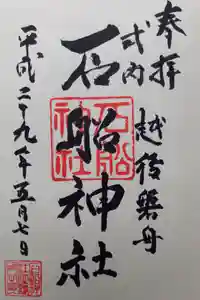 奉拝
式内
越後磐舟
石船神社
石船神社
平成二十九年五月七日